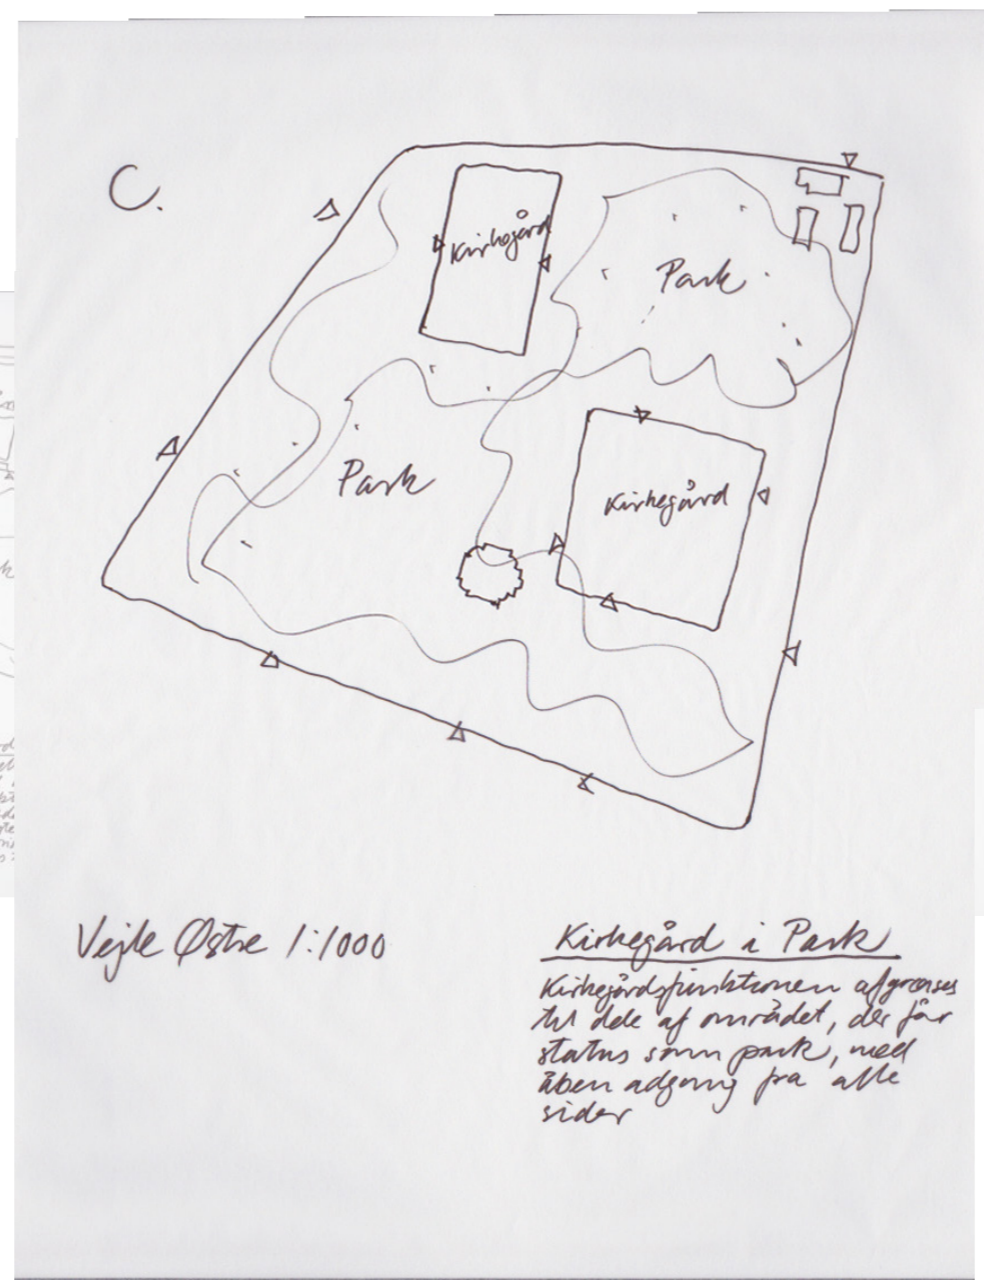 C.
Kirkegård
Park
Park
Kirkegård
Vejle Østre 1:1000
Kirkegård i Park
Kirkegårdsfunktionen afgrænses
til dele af området, der får
status som park, med
åben adgang fra alle
sider